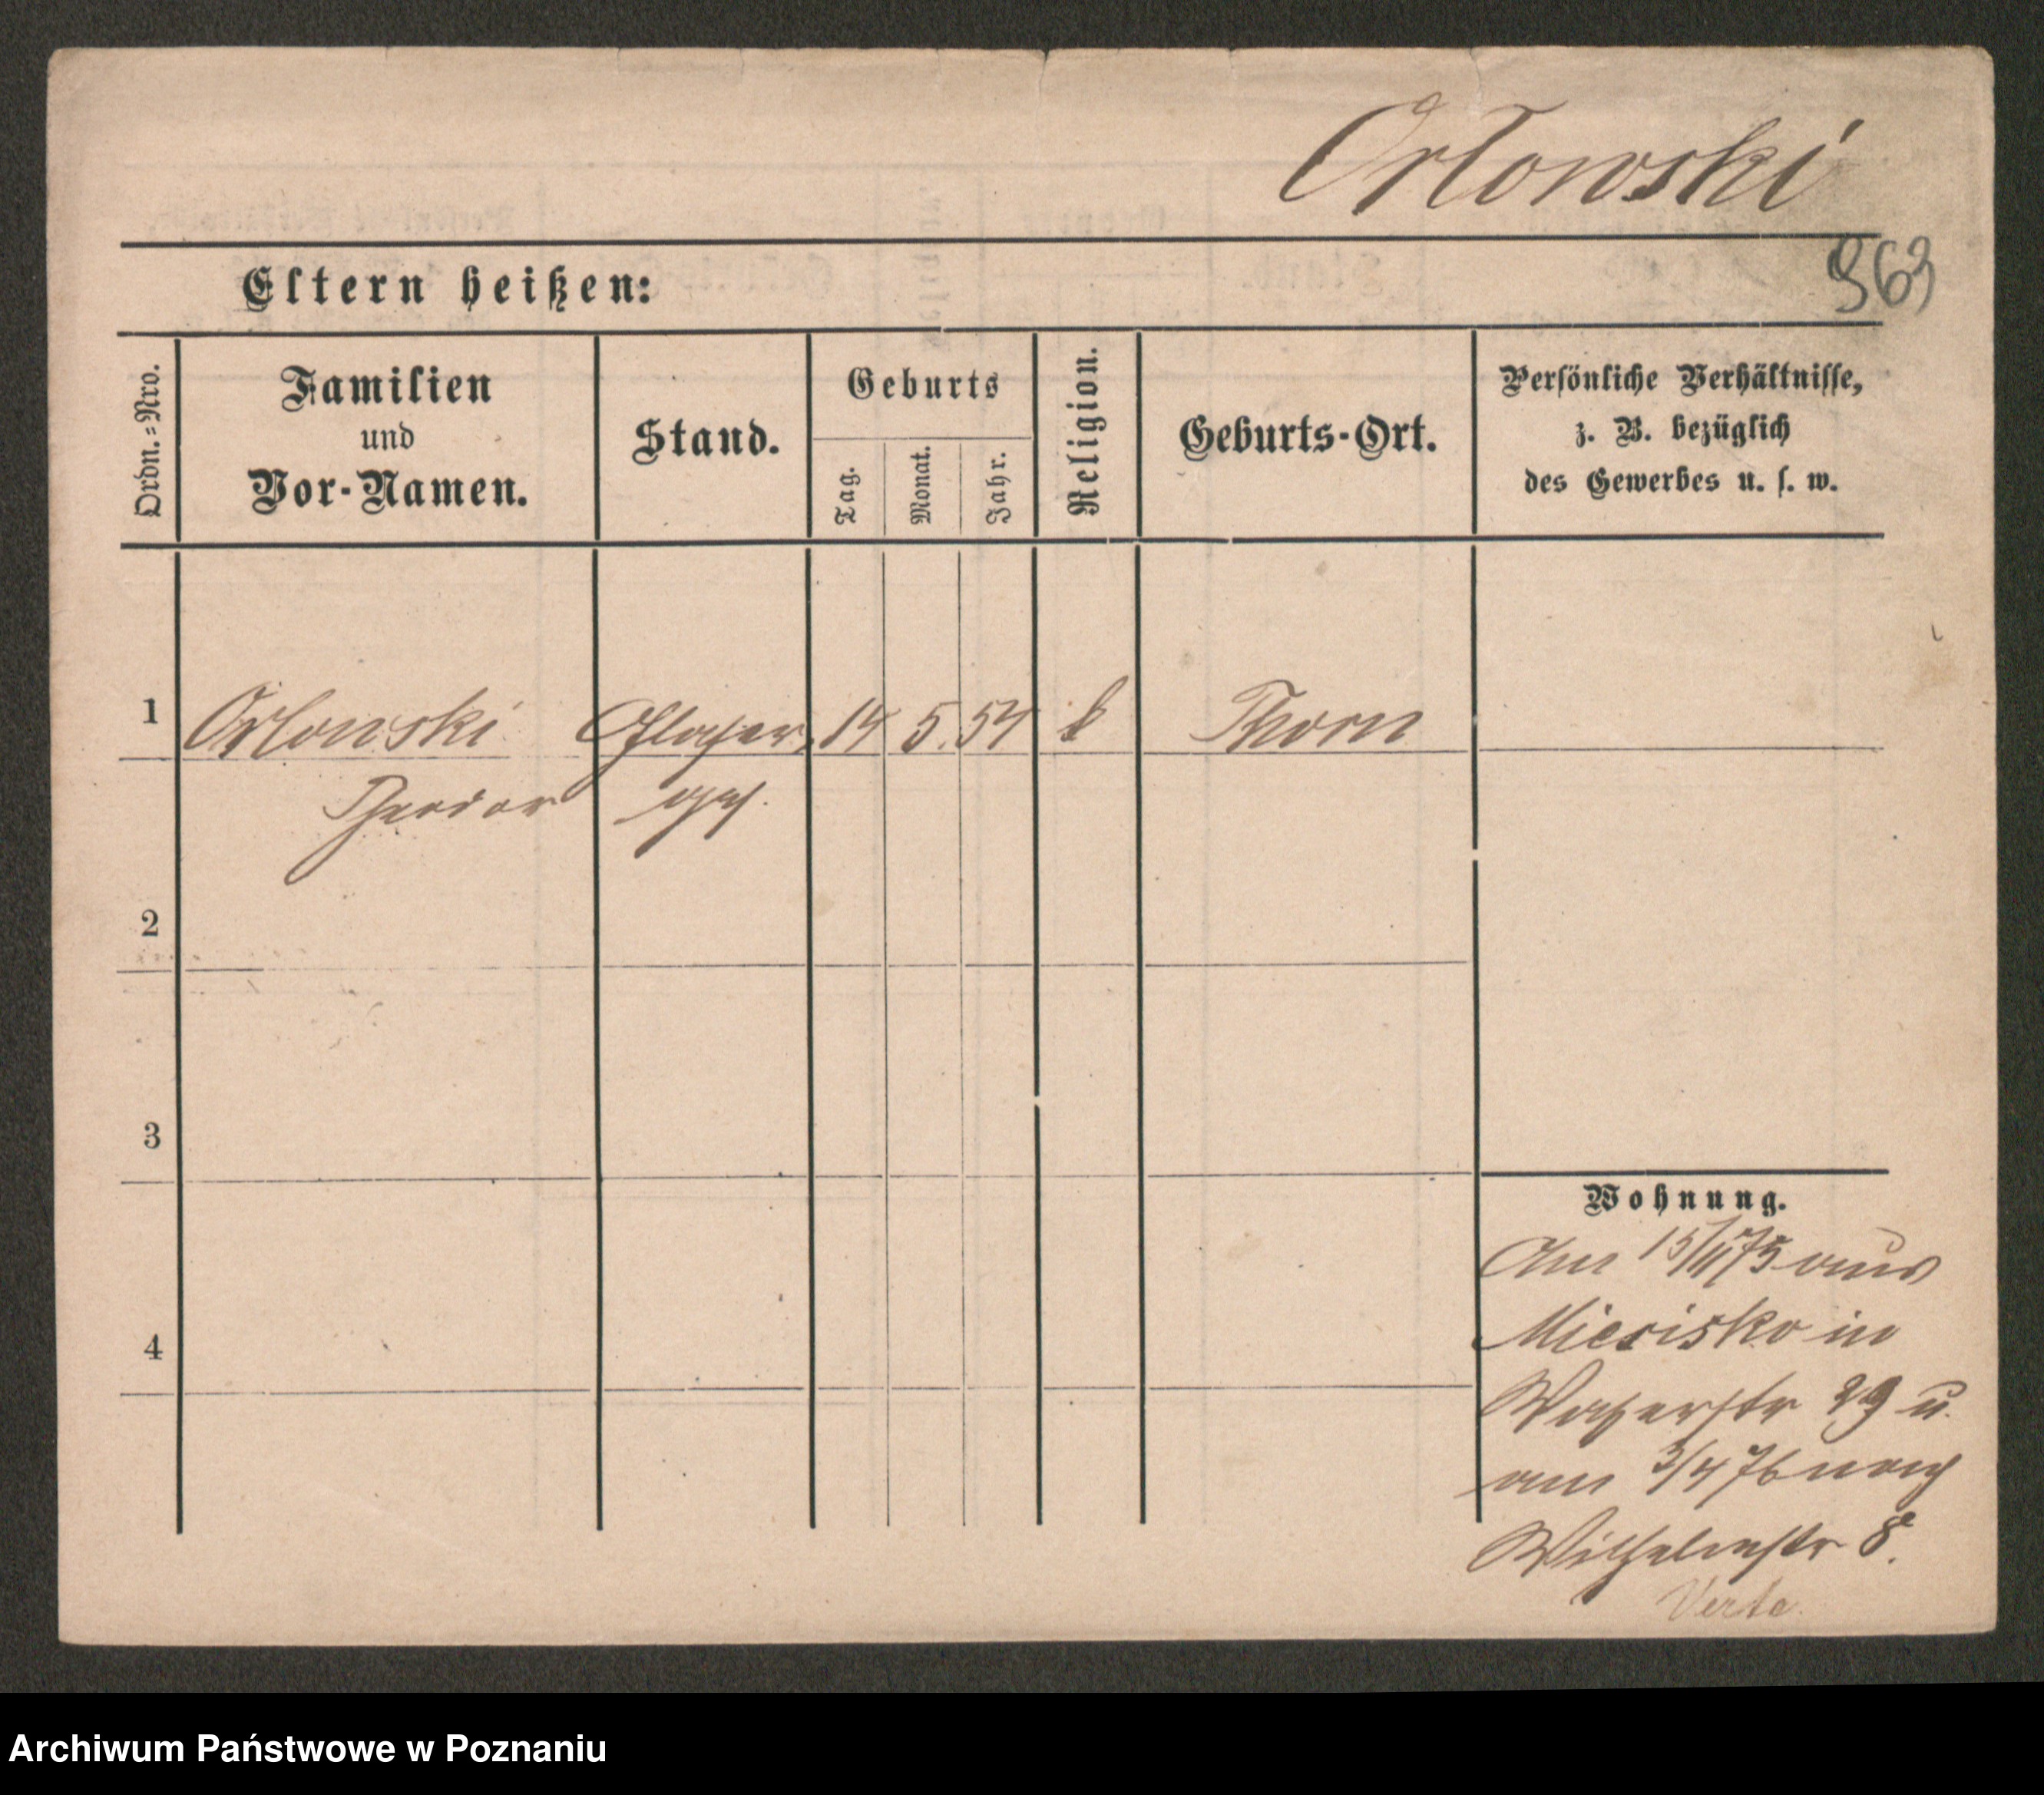 Orłowski
363
Eltern heißen:
Ordn.=Nro.
Familien
und
Vor-Namen.
Stand.
Geburts
Tag.
Monat.
Jahr.
Religion.
Geburts-Ort.
Persönliche Verhältnisse,
z. B. bezüglich
des Gewerbes u. s. w.
1 Orlowski Glaser 14 5. 54 k Thorn
Theodor
2
3
4
Wohnung.
Am 15/11 75 aus
in
Wasserstr 29 u.
am 3/4 76 nach
Wilhelmstr 8.
Verte
Archiwum Państwowe w Poznaniu